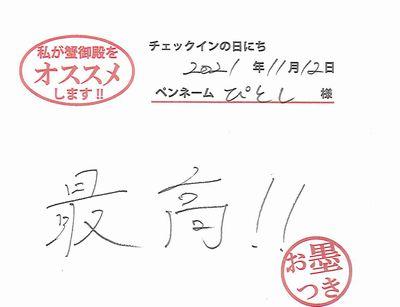 私が蟹御殿を
オススメ
します!!
チェックインの日にち
2021年11月12日
ペンネーム ぴとし 様
最高!!
お墨
つき